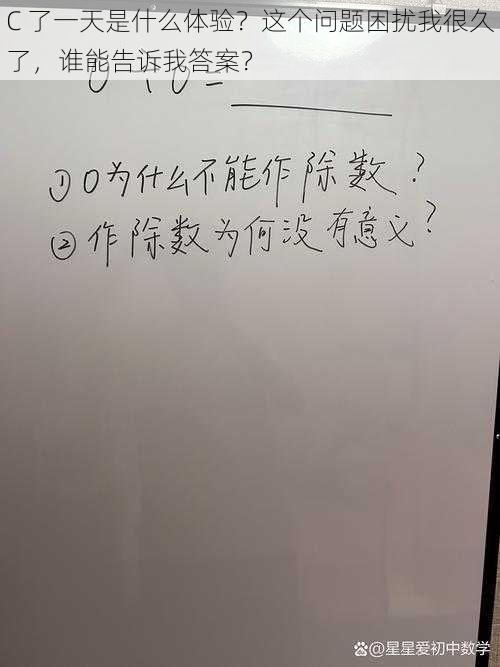 C 了一天是什么体验？这个问题困扰我很久
了，谁能告诉我答案？
①0为什么不能作除数？
②作除数为何没有意义？
星星爱初中数学